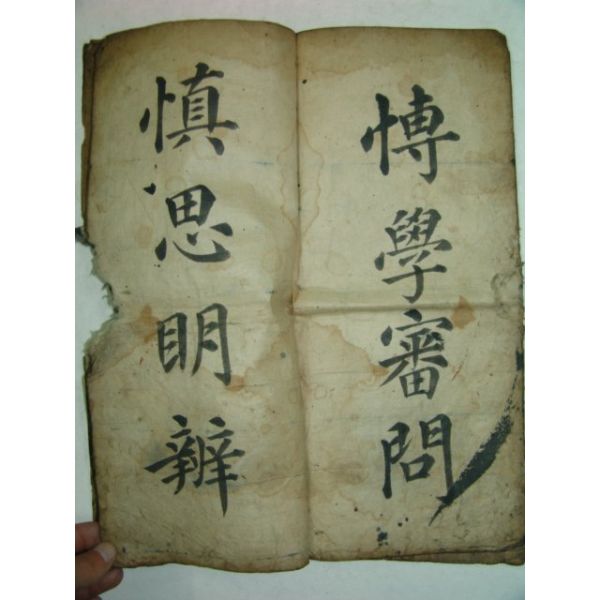 愽學審問
慎思明辨